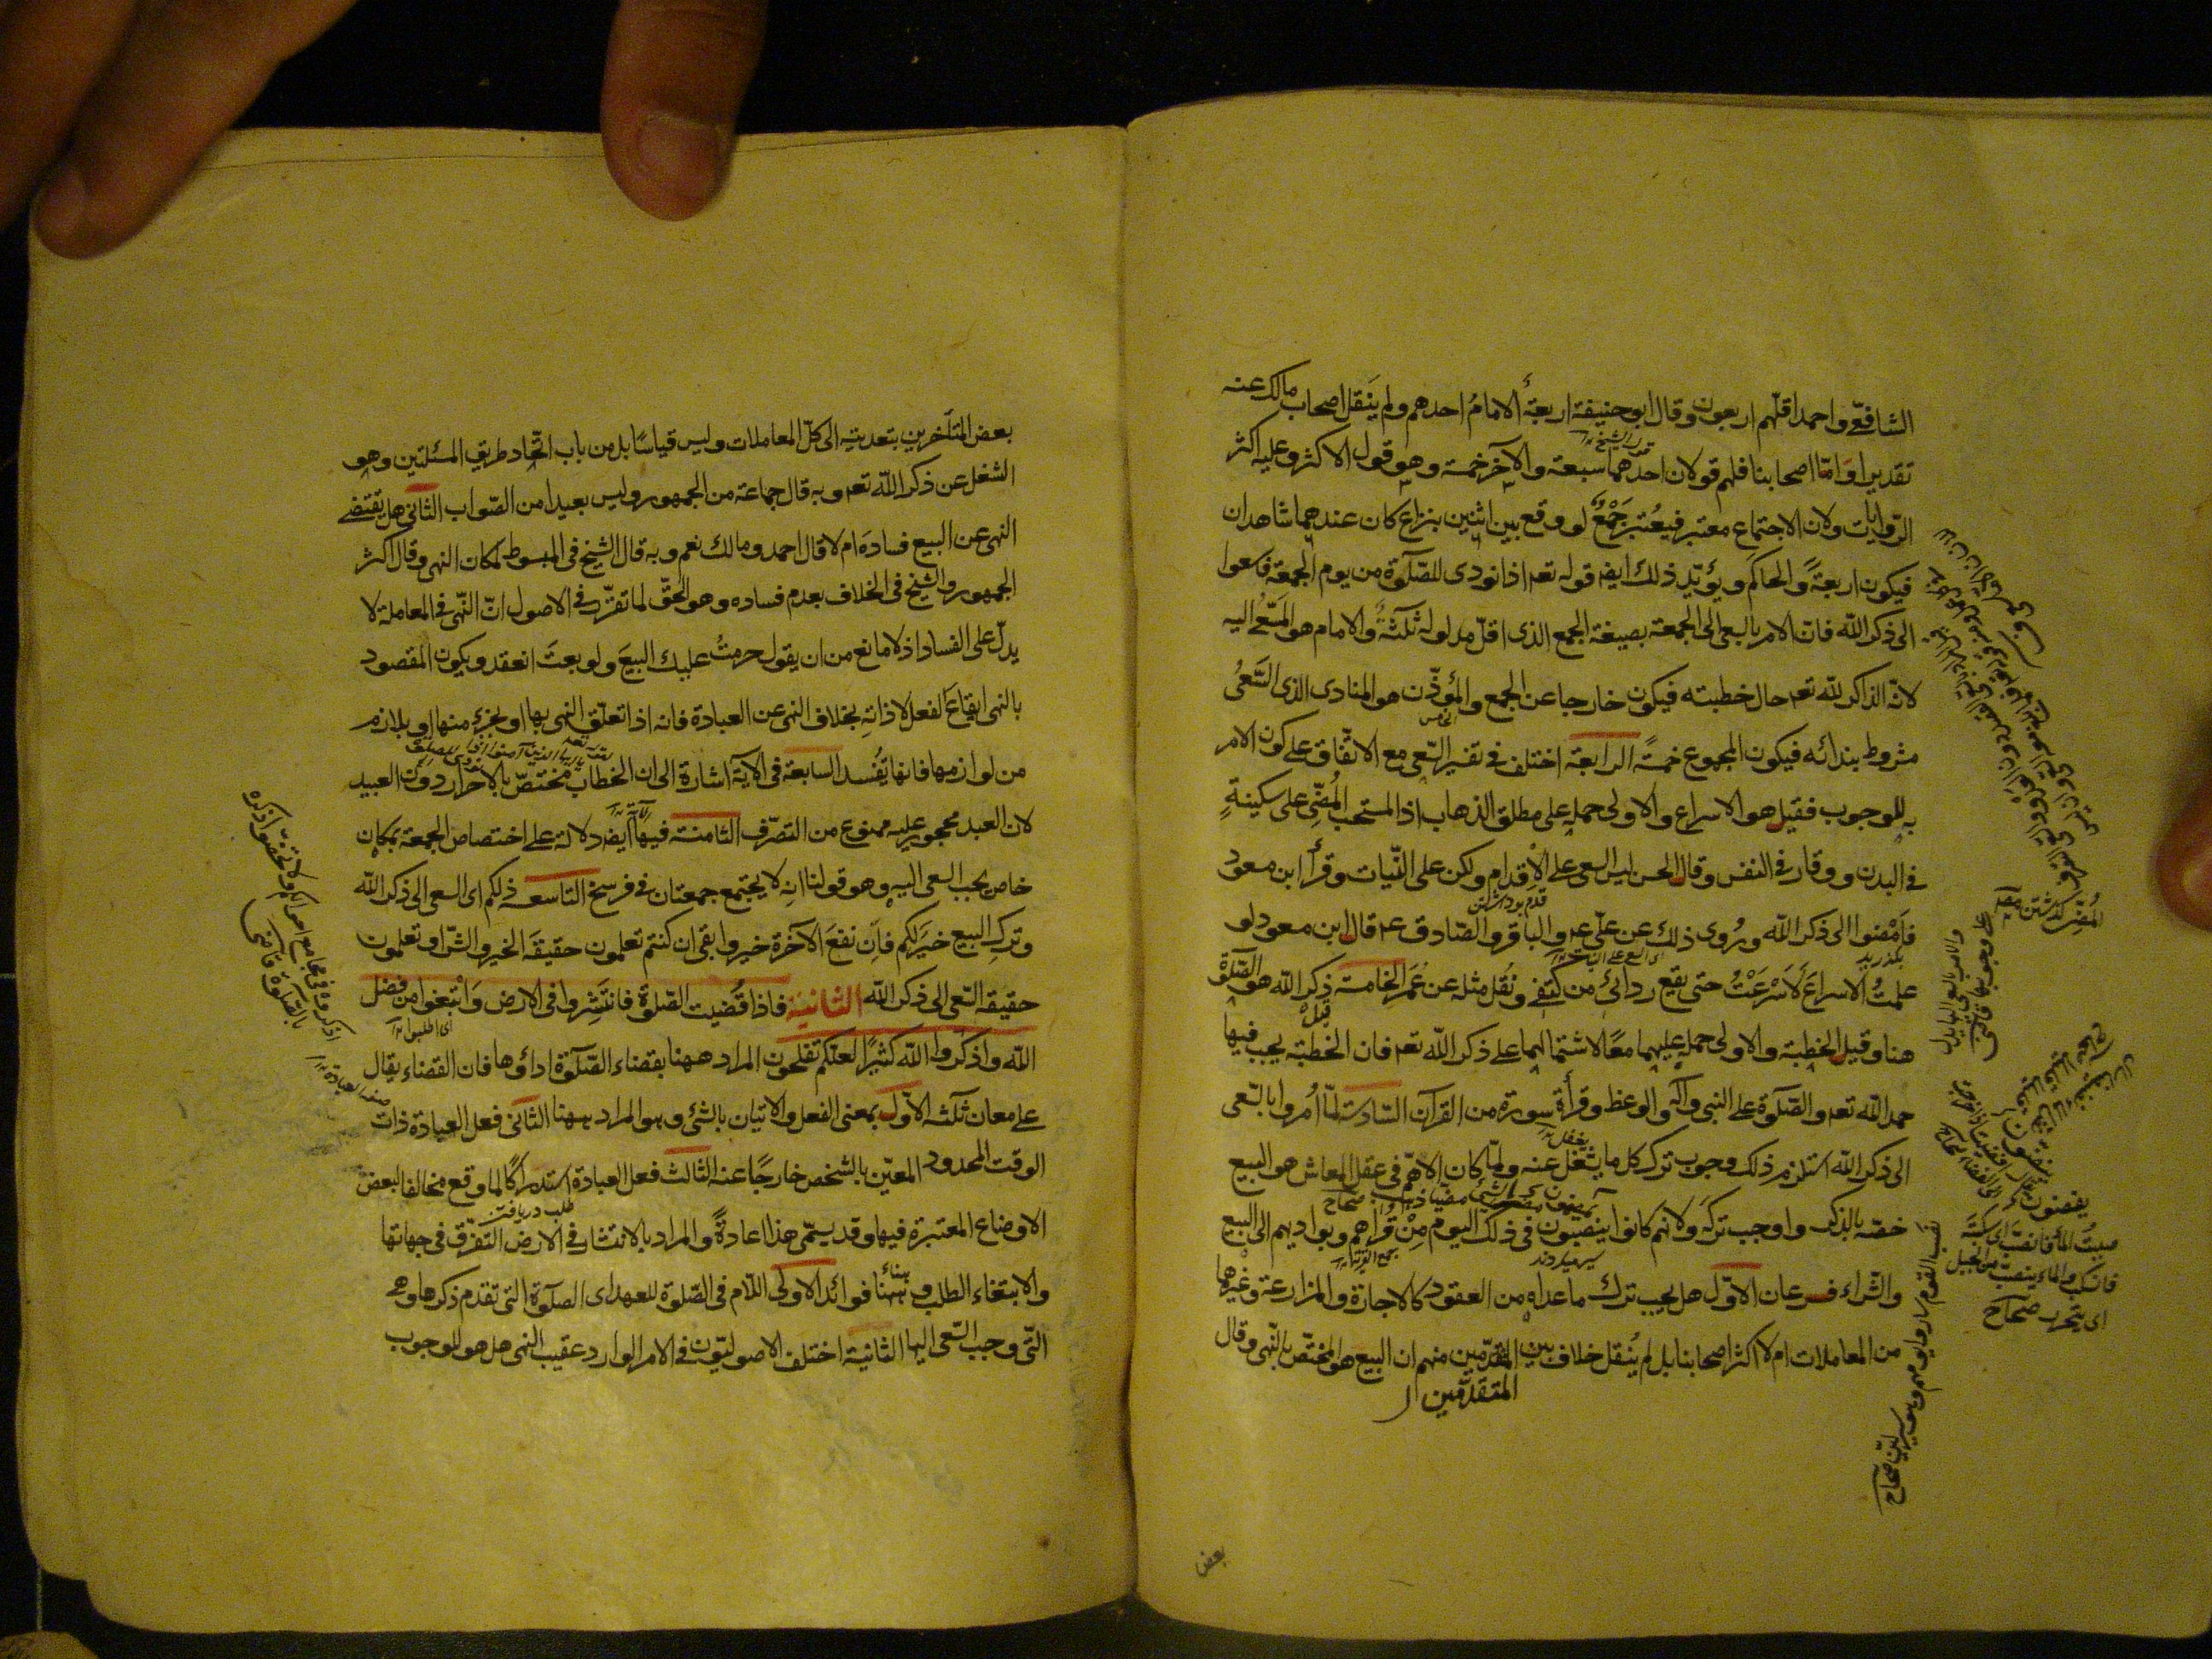 الشافعّي واحمد اقلّهم اربعون وقال ابو حنيفة اربعة الامامُ احدهم ولم يَنقل اصحاب مالك عنه
تقديرا وَامّا اصحابنا فلهم قولان احدهما سبعة والآخر خمسة وهو قول الاكثر وعليه اكثر
الرّوايات ولان الاجتماع معتبر فيعُتبر جَمْعٌ لو وقع بين اثنين بنزاع كان عندهما شاهدان
فيكون اربعةً والحاكم ويؤيّد ذلك ايضا قوله تعه اذا نودى للصّلوة من يوم الجمعة فاسعوا
الى ذكر الله فانّ الامر بالسعى الى الجمعة بصيغة الجمع الذى اقلّ مدلوله ثلثةٌ والامام هو المَسّعُى اليه
لانّه الذاكر للّه تعه حال خطبته فيكون خارجا عن الجمع والمؤذّن هو المنادى الذى السَّعىُ
مشروط بندائه فيكون المجموع خمسةً الرابعة اختلف في تفسير السّعى مع الاتّفاق على كون الامر
به للوجوب فقيل هو الاسراع والاولى حمله على مطلق الذهاب اذ المستحبّ المُضّىِ على سكينةٍ
في البدن ووقار في النفس وقال الحسن ليس السعى على الاقدام ولكن على النّيات وقرأ ابن مسعود
فامْضوا الى ذكر الله ورُوى ذلك عن علّى عه والباقر والصّادق عه قال ابن مسعود لو
علمتُ الاسراعَ لَاَسْرَعْتُ حتى يقع ردائى من كتفى ونُقل مثله عن عُمَر الخامسة ذكر الله هو الصّلوة
هنا وقيل الخطبة والاولى حمله عليهما معًا لاشتمالهما على ذكر اللّه تعه فان الخطبة يجب فيها
حمد اللّه تعه والصّلوة على النبى وآله والوعظ وقرأة سورة من القرآن السّادسة لمّا اُمروا بالسّعى
الى ذكر اللّه استلزم ذلك وجوب ترك كل ما يشغل عنه ولمّا كان الاهمّ في عقل المعاش هو البيع
خصّه بالذكر واوجب تركَه ولانّهم كانوا ينصبّون في ذلك اليوم مِنْ قُراهم وبواديهم الى البيع
والشّراء فرعان الاوّل هل يجب ترك ما عداه من العقود كالاجارة والمزارعة وغيرهما
من المعاملات ام لا اكثر اصحابنا بل لم يُنقل خلاف بين المتقدّمين منهم ان البيع هو المختصّ بالنّهى وقال
المتقدّمين
بعض
بعض المتأخرين بتعديته الى كلّ المعاملات وليس قياسًا بل من باب اتّحاد طريق المسئلتين وهو
الشغل عن ذكر اللّه تعه وبه قال جماعة من الجمهور وليس بعيدا من الصّواب الثانى هل يقتضى
النهى عن البيع فسادَه ام لا قال احمد ومالك نعم وبه قال الشيخ في المبسوط لمكان النهى وقال اكثر
الجمهور والشيخ في الخلاف بعدم فساده وهو الحقّ لما تقرّر في الاصول انّ النّهى في المعاملة لا
يدلّ على الفساد اذ لا مانع من ان يقول حرمتُ عليك البيعَ ولو بعتَ انعقد ويكون المقصود
بالنهى ايقاعَ الفعل لا ذاتِه بخلاف النهى عن العبادة فانه اذا تعلّق النهى بها او بجزء منها او بلازم
من لوازمها فانها تَفُسد السابعة في الآية اشارة الى ان الخطاب مختصّ بالاحرار دون العبيد
لان العبد محجور عليه ممنوع من التصرّف الثامنة فيها ايضا دلالة على اختصاص الجمعة بمكان
خاص يجب السعى اليه وهو قولنا انه لا يجتمع جمعتان في فرسخ التاسعة ذلكم اى السعى الى ذكر اللّه
وترك البيع خير لكم فانّ نفعَ الآخرة خير وابقى ان كنتم تعلمون حقيقةَ الخير والشّر او تعلمون
حقيقة السّعى الى ذكر الله الثانية فاذا قُضيت الصّلوة فانتَشِروا في الارض وَابْتغوا من فضل
اللّه واذكُروا اللّه كثيرًا لعلّكم تفلحون المراد ههنا بقضاء الصّلوة اداؤها فان القضاء يقال
على معان ثلثه الاوّل بمعنى الفعل والاتيان بالشئ وهو المراد ههنا الثانى فعل العبادة ذات
الوقت المحدود المعيّن بالشخص خارجًا عنه الثالث فعل العبادة استدراكًا لما وقع مخالفا لبعض
الاوضاع المعتبرة فيها وقد يسمّى هذا اعادةً والمراد بالانتشار في الارض التفرّق في جهاتها
والابتغاء الطلب وههنا فوائد الاولى اللّام في الصّلوة للعهد اى الصلوة التى تقدم ذكرها وهى
التّى وجب السّعى اليها الثانية اختلف الاصوليّون في الامر الوارد عقيب النهى هل هو للوجوب